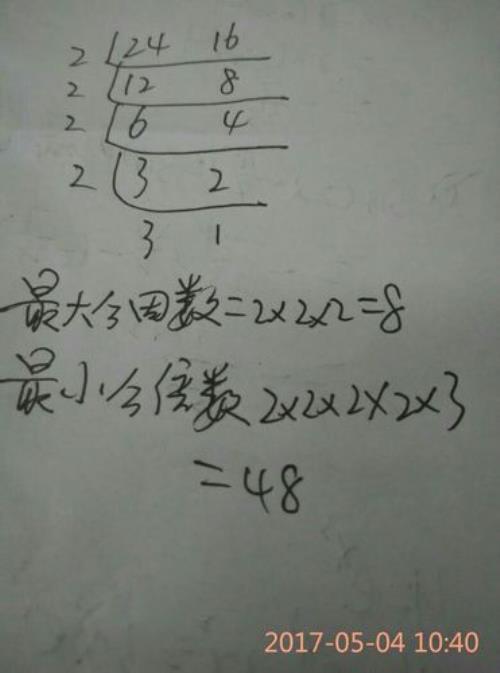 2 24 16
2 12 8
2 6 4
2 3 2
3 1
最大公因数=2×2×2=8
最小公倍数2×2×2×2×3
=48
2017-05-04 10:40